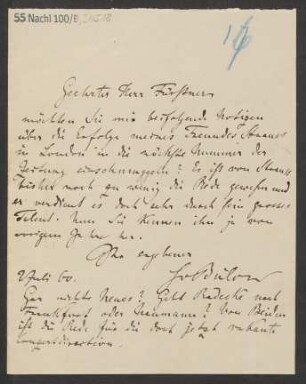 55 Nachl 100/B,
Geehrter Herr Fürstner
möchten Sie mir beifolgende Notizen
über die Erfolge meines Freundes
in London in die nächste Nummer der
Zeitung ? Es ist von
bisher noch zu wenig die Rede gewesen und
er verdient es doch sehr durch sein grosses
Talent. Nun Sie kennen ihn ja vom
vorigen Jahre her.
Ihr ergebener
HvBülow
2 Juli 60.
Gar nichts Neues? Geht Radecke nach
Frankfurt oder Naumann? Von Beiden
ist die Rede für die dort jetzt vakante